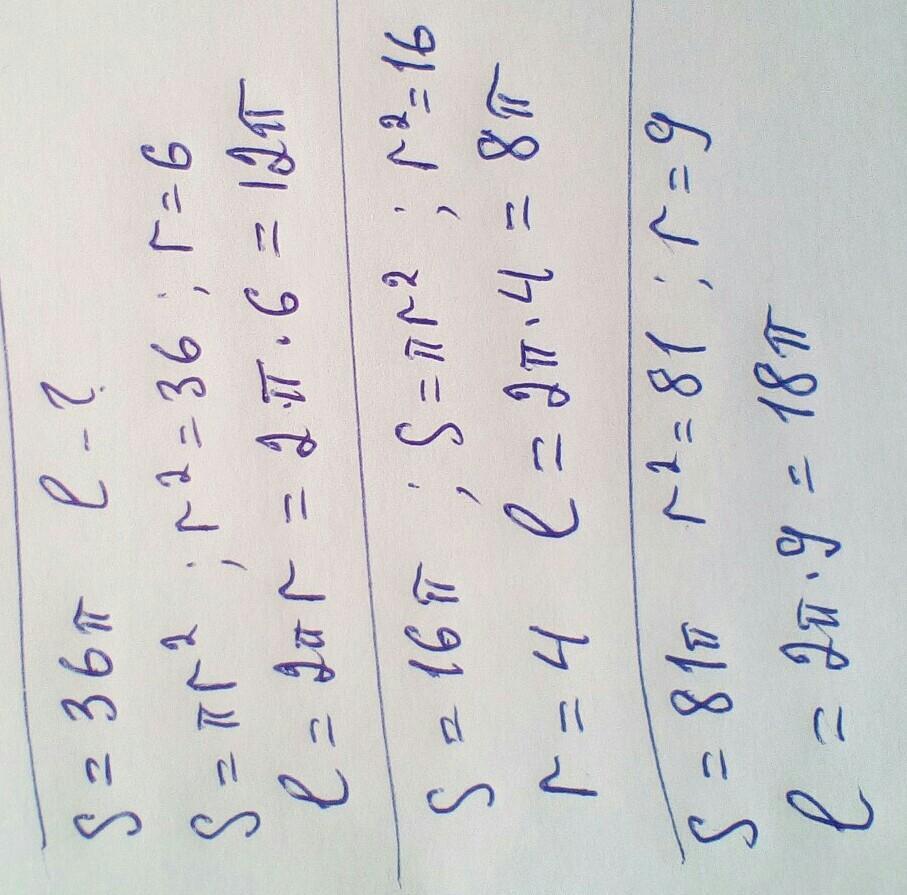 S = 36π   ℓ - ?
S = πr² ; r² = 36 ; r = 6
ℓ = 2πr = 2·π·6 = 12π
S = 16π ; S = πr² ; r² = 16
r = 4   ℓ = 2π·4 = 8π
S = 81π   r² = 81 ; r = 9
ℓ = 2π·9 = 18π